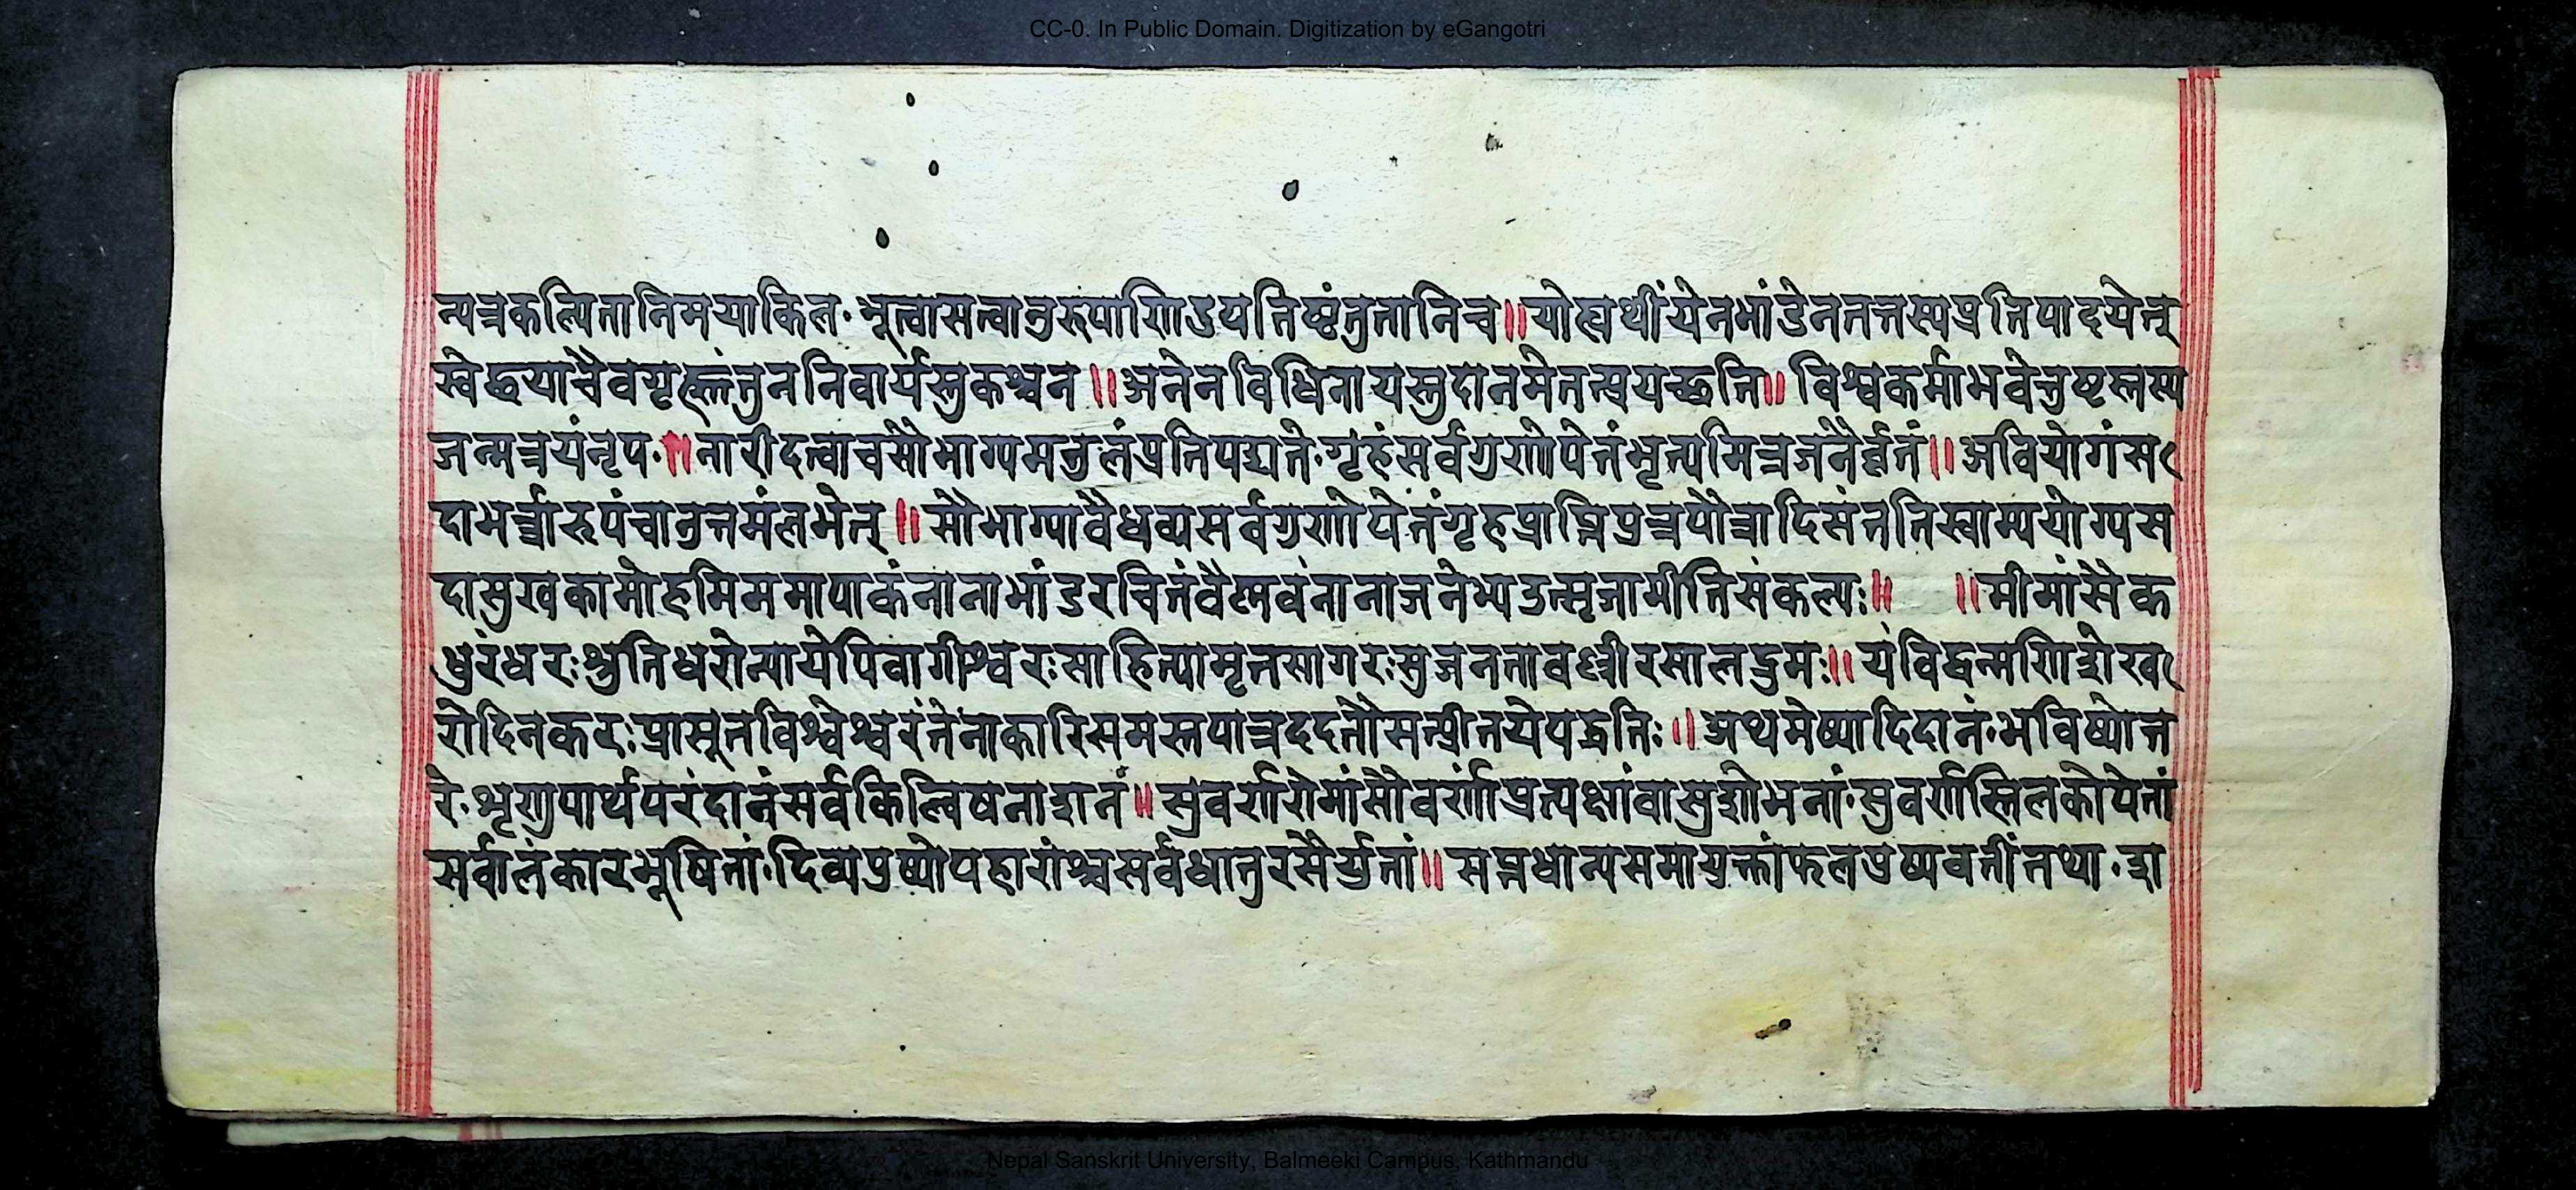 CC-0. In Public Domain. Digitization by eGangotri
न्यत्रकल्पितानिमयाकिल॰भूत्वासत्वानुरूपाणिउपतिष्टंतुतानिच॥योह्यर्थीयेनभांडेनतत्तस्यप्रतिपादयेत्
स्वेछयाचैवगृह्णंतुननिवार्यस्तुकश्चन॥अनेनविधिनायस्तुदानमेतत्प्रयच्छति॥विश्वकर्माभवेत्तुष्टस्तस्य
जन्मत्रयंनृप॰॥नारीदत्वाचसौभाग्यमतुलंप्रतिपद्यते॰गृहंसर्वगुणोपेतंभृत्यमित्रजनैर्वृतं॥अवियोगंस
दाभर्त्रारूपंचानुत्तमंलभेत्॥सौभाग्यावैधव्यसर्वगुणोपेतंगृहप्राप्तिपुत्रपौत्रादिसंततिस्वाम्ययोग्यस
दासुखकामोहमिममापाकंनानाभांडरचितंवैष्णवंनानाजनेभ्यउत्सृजामीतिसंकल्पः॥ ॥मीमांसैक
धुरंधरःश्रुतिधरोन्यायेपिवागीश्वरःसाहित्यामृतसागरःसुजनतावल्लीरसालद्रुमः॥यंविद्वन्मणिशेख
रोदिनकरःप्रासूतविश्वेश्वरंतेनाकारिसमस्तपात्रददतौसत्प्रीतयेपद्धतिः॥अथमेष्यादिदानं॰भविष्योत्त
रे॰शृणुपार्थपरंदानंसर्वकिल्विषनाशनं॥सुवर्णरोमांसौवर्णांप्रत्यक्षांवासुशोभनां॰सुवर्णतिलकोपेतां
सर्वालंकारभूषितां॰दिव्यपुष्पोपहारांश्चसर्वधातुरसैर्युतां॥सप्तधान्यसमायुक्तांफलपुष्पवतींतथा॰शा
Nepal Sanskrit University, Balmeeki Campus, Kathmandu